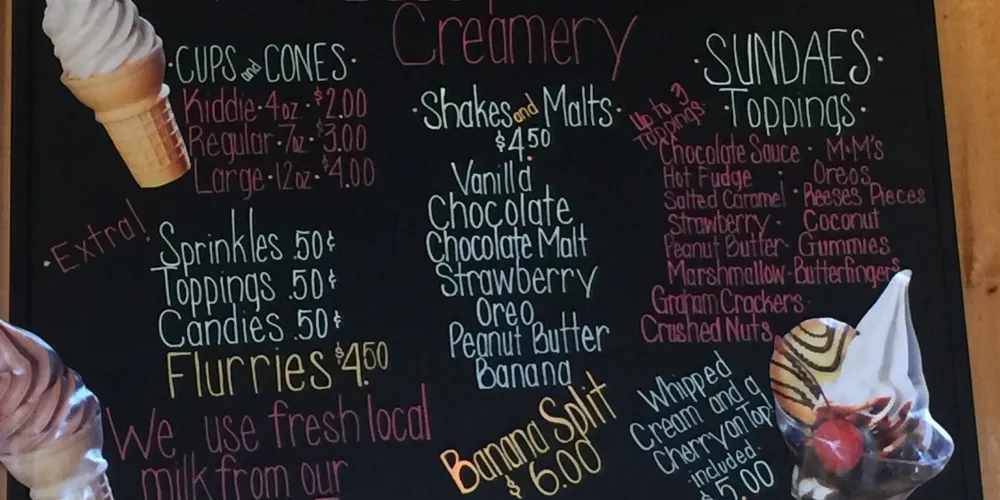 Creamery
·CUPS and CONES·
Kiddie · 4oz · $2.00
Regular · 7oz · $3.00
Large · 12oz · $4.00
·Extra!
Sprinkles .50¢
Toppings .50¢
Candies .50¢
Flurries $4.50
We use fresh local
milk from our
·Shakes and Malts·
$4.50
Vanilla
Chocolate
Chocolate Malt
Strawberry
Oreo
Peanut Butter
Banana
Banana Split
$6.00
·SUNDAES·
·Toppings·
Up to 3
Toppings
Chocolate Sauce · M·M's
Hot Fudge · Oreos
Salted Caramel · Reeses Pieces
Strawberry · Coconut
Peanut Butter · Gummies
Marshmallow · Butterfingers
Graham Crackers ·
Crushed Nuts
Whipped
Cream and a
Cherry on Top!
included·
$5.00